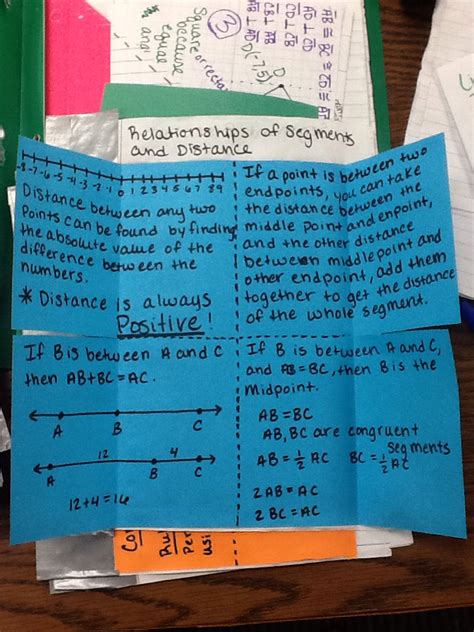 Square or recta
because
equal
angl
3
D(-7,5)
D
AB ≅ BC ≅ CD ≅
AB ⊥ CD
CD ⊥ CB
CB ⊥ AB
AB ⊥
Relationships of Segments
and Distance
-8 -7 -6 -5 -4 -3 -2 -1 0 1 2 3 4 5 6 7 8 9
Distance between any two
points can be found by finding
the absolute value of the
difference between the
numbers.
* Distance is always
Positive!
If a point is between two
endpoints, you can take
the distance between the
middle point and enpoint,
and the other distance
between middlepoint and
other endpoint, add them
together to get the distance
of the whole segment.
If B is between A and C
then AB+BC=AC.
A B C
12 4
A B C
12+4=16
If B is between A and C,
and AB=BC, then B is the
Midpoint.
AB=BC
AB, BC are congruent
segments
AB=1/2 AC BC=1/2 AC
2AB=AC
2BC=AC
Co
Ru
Per
usi